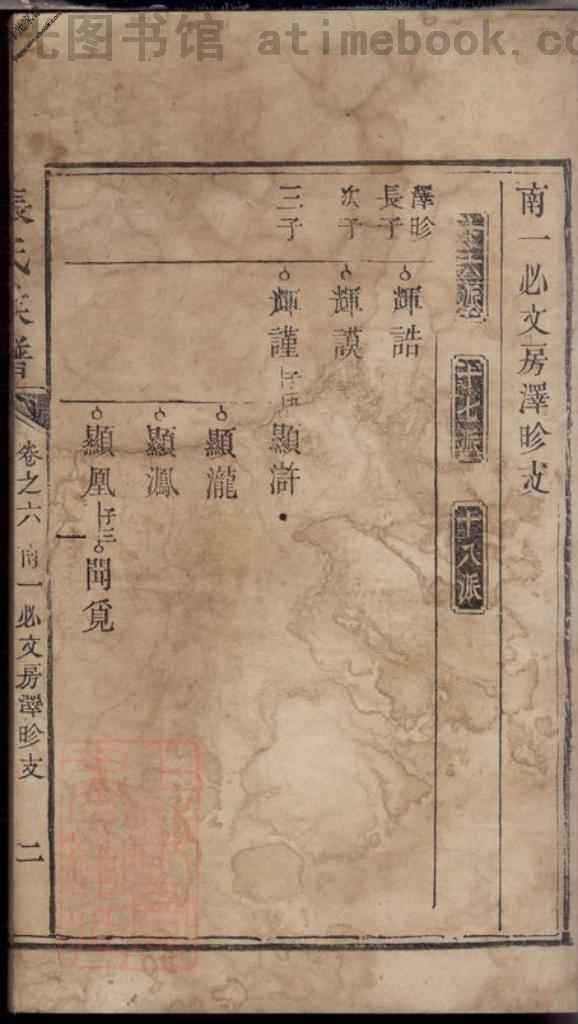 光图书馆 atimebook.co
南一必文房澤昣支
十六派
十七派
十八派
澤昣
長子
輝誥
次子
輝謨
三子
輝謹
子四
顯滸
顯瀧
顯鳳
子三
聞覓
張氏族譜
卷之六
南一必文房澤昣支
二